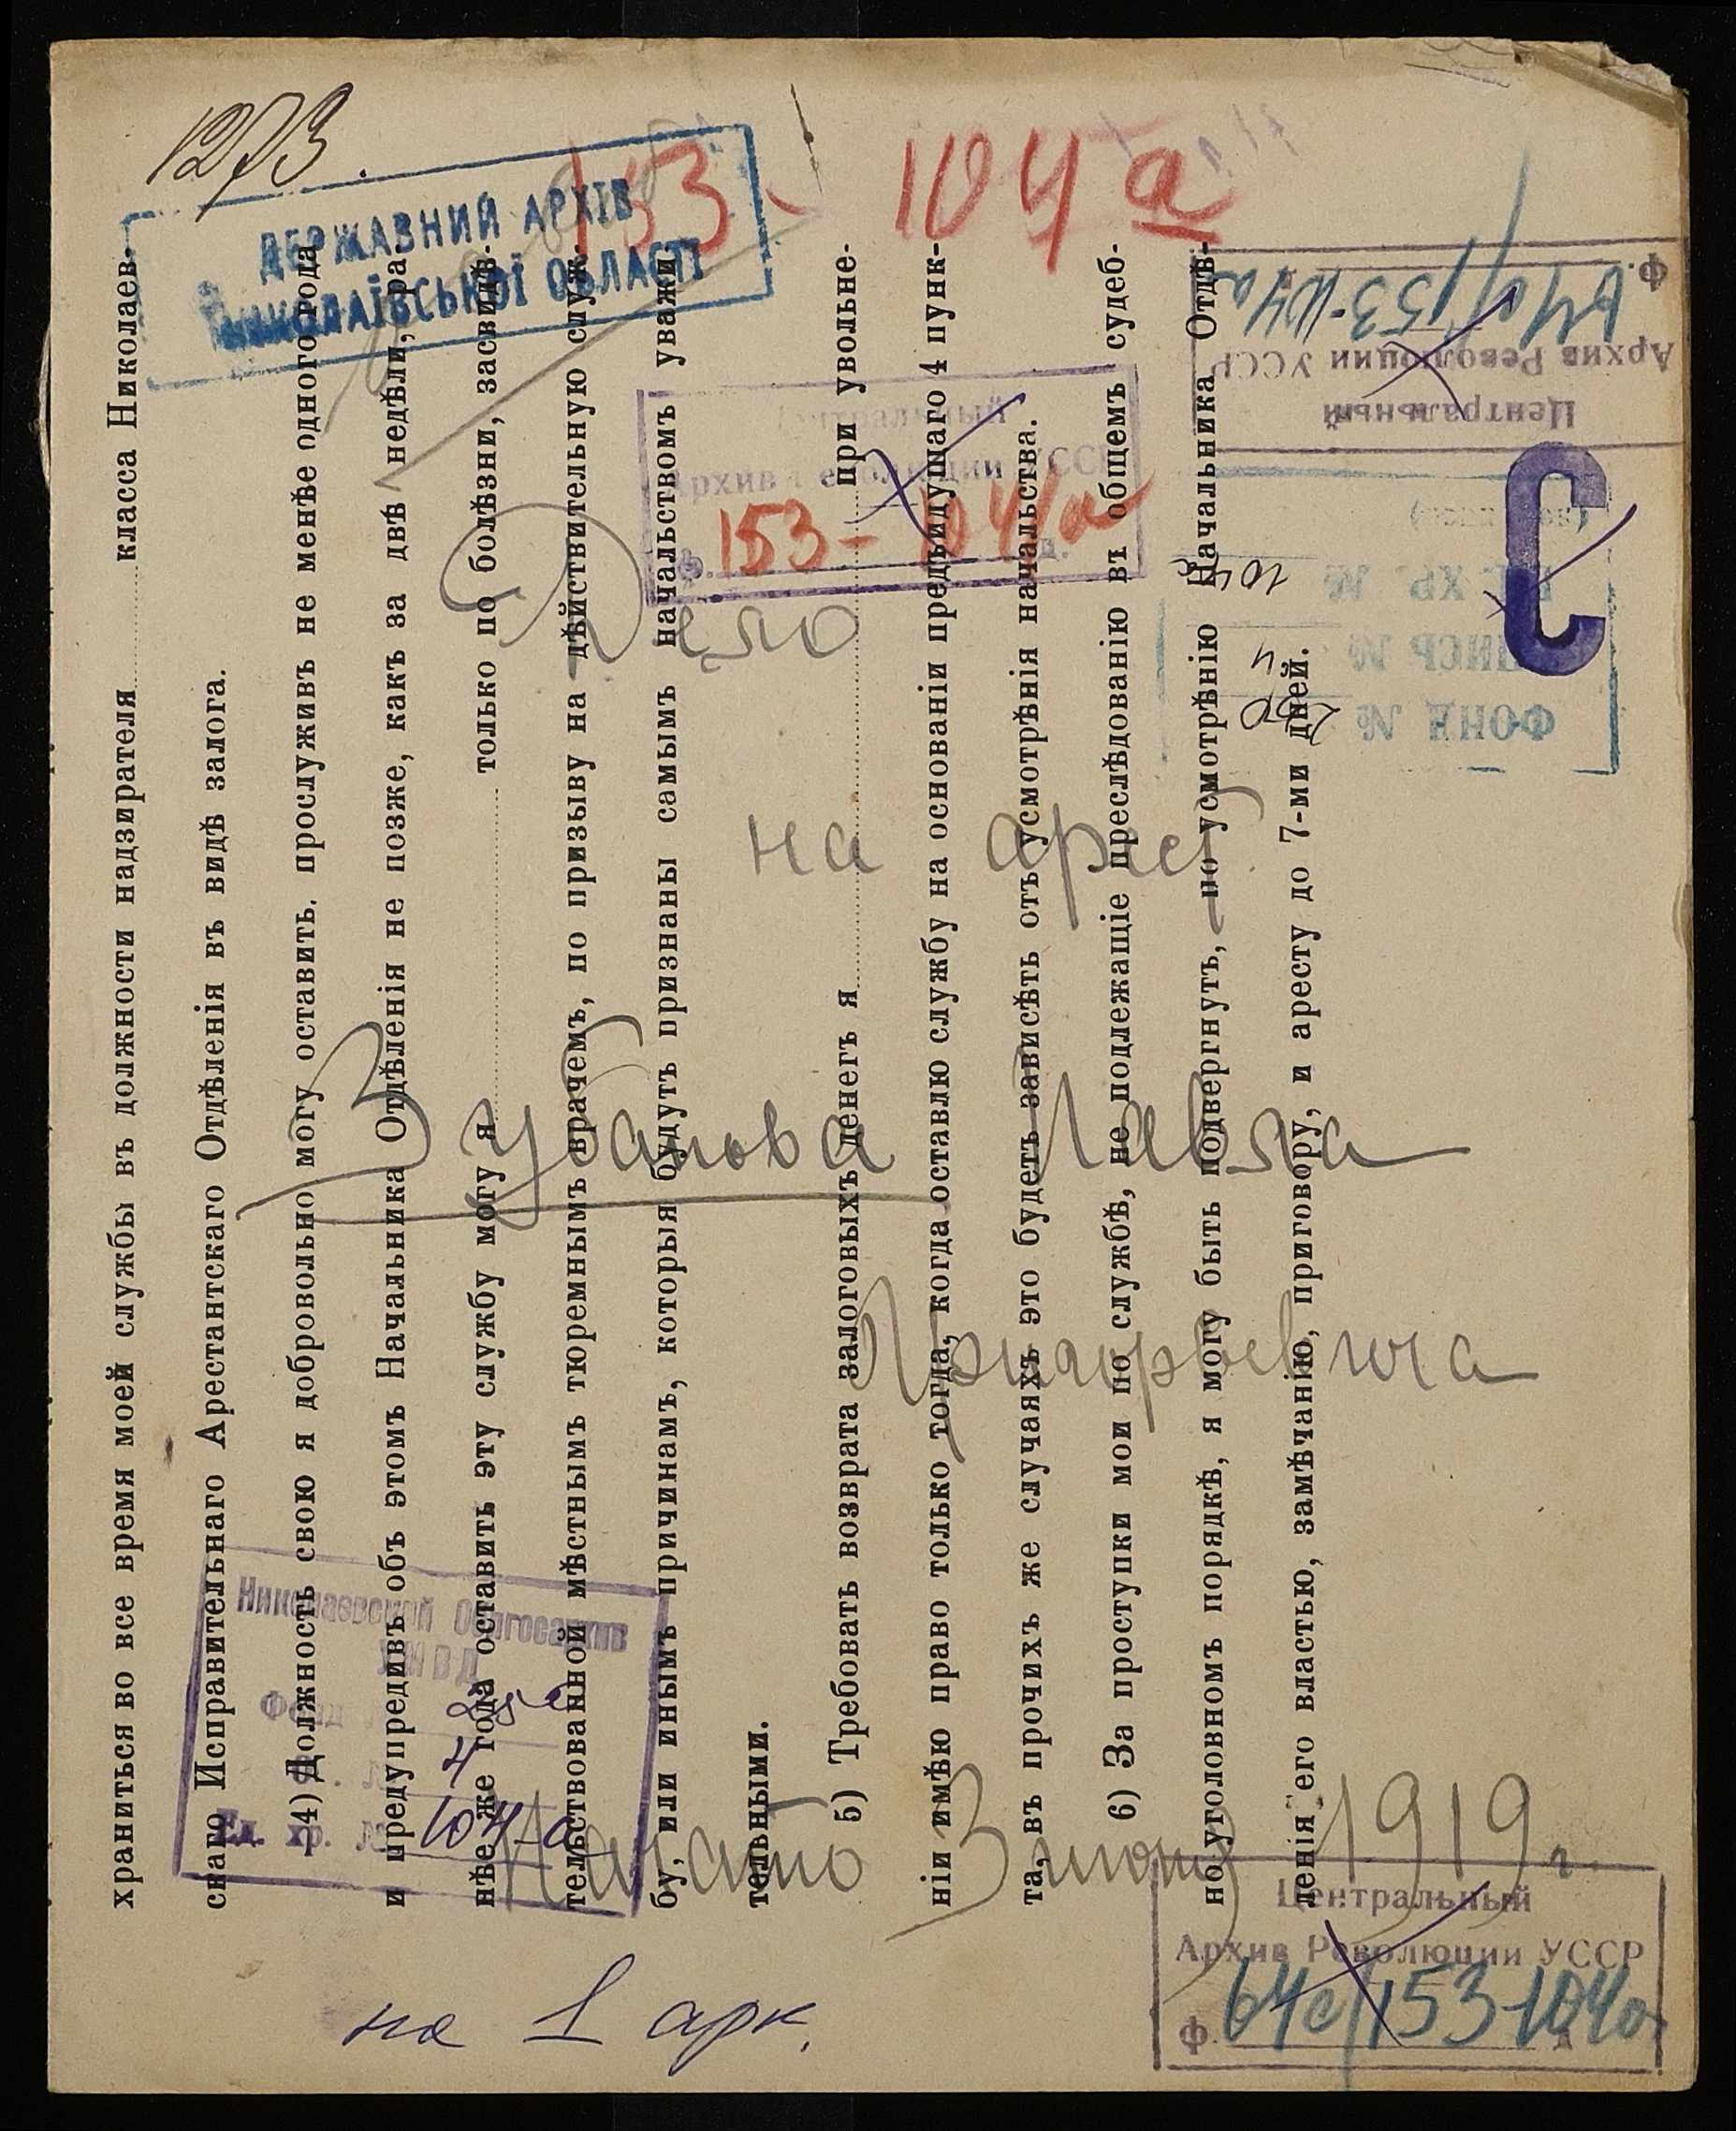 1273.
153 - 104 а
ДЕРЖАВНИЙ АРХІВ
МИКОЛАЇВСЬКОЇ ОБЛАСТІ
Ф. 64с/153-104а
Центральный
Архив Революции УССР
Центральный
Архив Революции УССР
Ф. 153 - 104/а д.
С
ФОНД №
ОПИСЬ № 4
ЕД. ХР. № 104
Дело
на арест
Зубанова Павла
Григорьевича
Начато 3 июня 1919 г.
Николаевский Облгосархив
УНВД
Фонд
4
Ед. хр. № 104-а
на 1 арк.
Центральный
Архив Революции УССР
ф. 64с/153-104а д
храниться во все время моей службы въ должности надзирателя класса Николаев-
скаго Исправительнаго Арестантскаго Отдѣленія въ видѣ залога.
4) Должность свою я добровольно могу оставить, прослуживъ не менѣе одного года
и предупредивъ объ этомъ Начальника Отдѣленія не позже, какъ за двѣ недѣли, ра-
нѣе же года оставить эту службу могу я только по болѣзни, засвидѣ-
тельствованной мѣстнымъ тюремнымъ врачемъ, по призыву на дѣйствительную служ-
бу, или инымъ причинамъ, которыя будутъ признаны самымъ начальствомъ уважи-
тельными.
5) Требовать возврата залоговыхъ денегъ я при увольне-
ніи имѣю право только тогда, когда оставлю службу на основаніи предъидущаго 4 пунк-
та, въ прочихъ же случаяхъ это будетъ зависѣть отъ усмотрѣнія начальства.
6) За проступки мои по службѣ, не подлежащіе преслѣдованію въ общемъ судеб-
но-уголовномъ порядкѣ, я могу быть подвергнутъ, по усмотрѣнію Начальника Отдѣ-
ленія его властью, замѣчанію, приговору, и аресту до 7-ми дней.